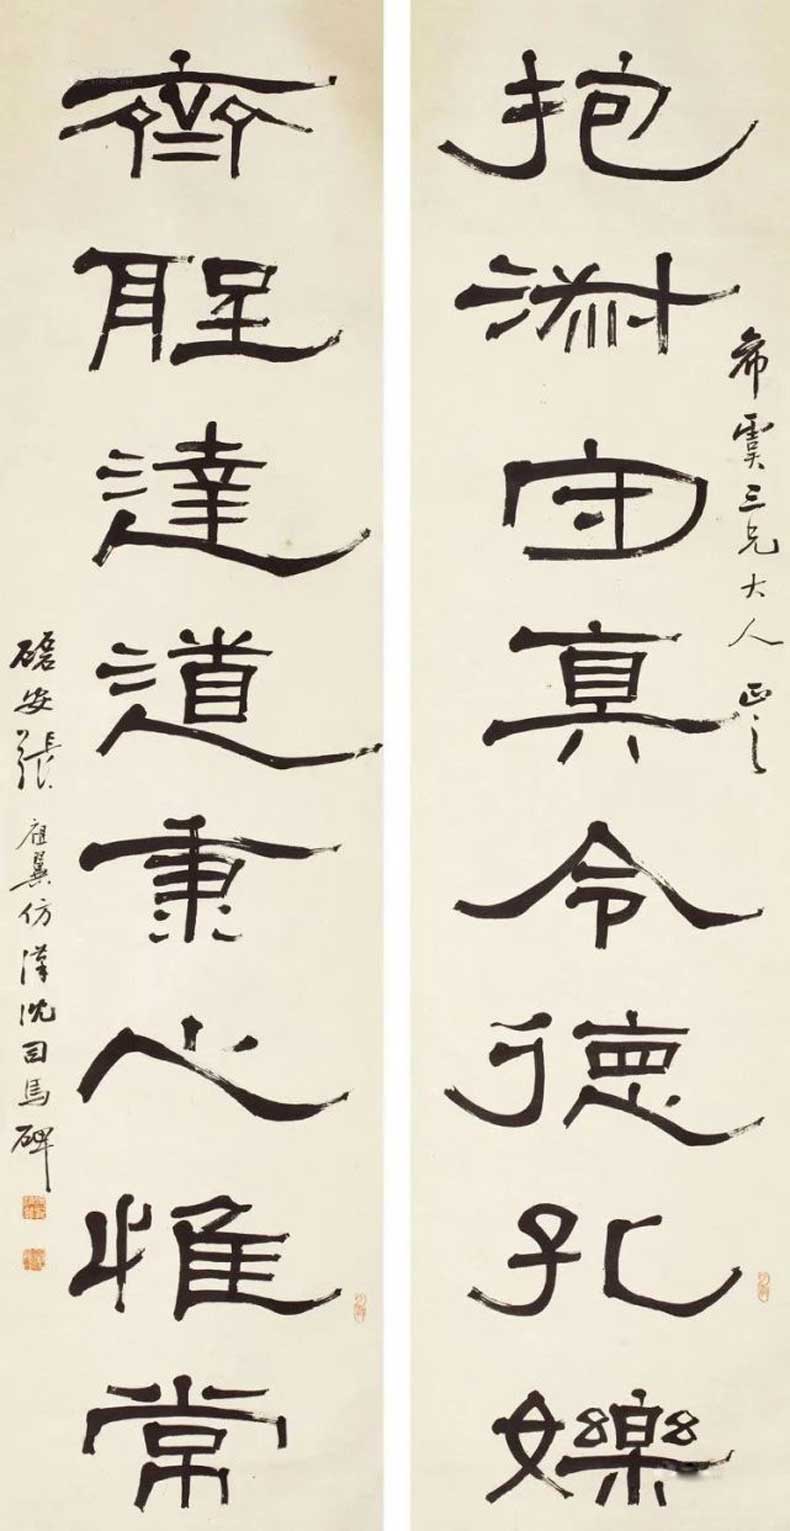 希虞三兄大人正之
抱淑守真令德孔嬫
齊聖達道秉心惟常
磊安張祖翼仿漢沈司馬碑